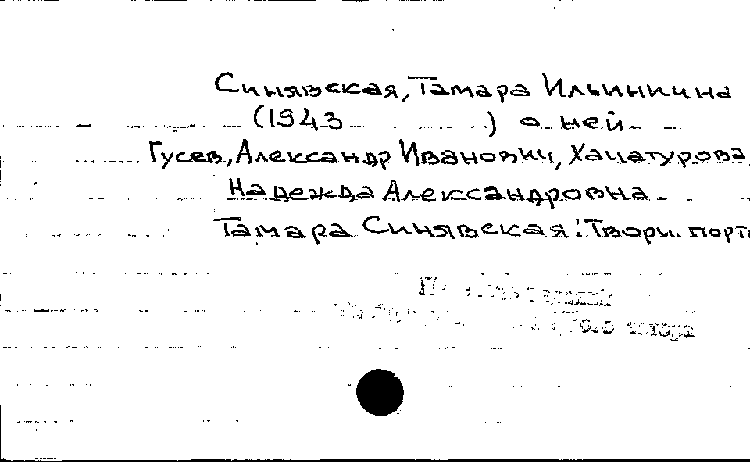 Синявская, Тамара Ильинична
(1943 ) о ней
Гусев, Александр Иванович, Хачатурова,
Надежда Александровна
Тамара Синявская: Творч. порт
того автора